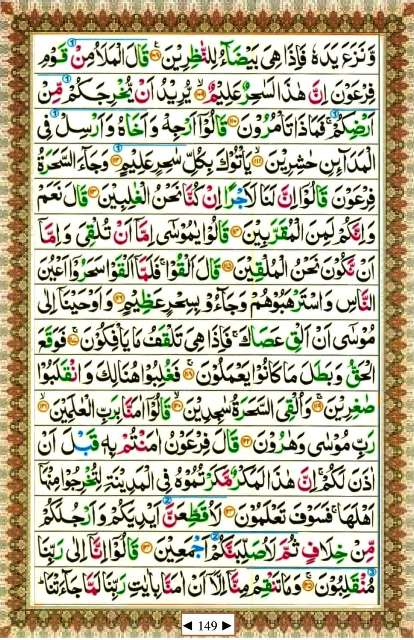 وَّنَزَعَ يَدَهٗ فَاِذَا هِيَ بَيْضَآءُ لِلنّٰظِرِيْنَ ۝۱۰۸ قَالَ الْمَلَاُ مِنْ قَوْمِ
فِرْعَوْنَ اِنَّ هٰذَا لَسٰحِرٌ عَلِيْمٌ ۝۱۰۹ يُّرِيْدُ اَنْ يُّخْرِجَكُمْ مِّنْ
اَرْضِكُمْ ۚ فَمَاذَا تَاْمُرُوْنَ ۝۱۱۰ قَالُوْۤا اَرْجِهْ وَاَخَاهُ وَاَرْسِلْ فِي
الْمَدَآئِنِ حٰشِرِيْنَ ۝۱۱۱ يَاْتُوْكَ بِكُلِّ سٰحِرٍ عَلِيْمٍ ۝۱۱۲ وَجَآءَ السَّحَرَةُ
فِرْعَوْنَ قَالُوْۤا اِنَّ لَنَا لَاَجْرًا اِنْ كُنَّا نَحْنُ الْغٰلِبِيْنَ ۝۱۱۳ قَالَ نَعَمْ
وَاِنَّكُمْ لَمِنَ الْمُقَرَّبِيْنَ ۝۱۱۴ قَالُوْا يٰمُوْسٰۤى اِمَّاۤ اَنْ تُلْقِيَ وَاِمَّاۤ
اَنْ نَّكُوْنَ نَحْنُ الْمُلْقِيْنَ ۝۱۱۵ قَالَ اَلْقُوْا ۚ فَلَمَّاۤ اَلْقَوْا سَحَرُوْۤا اَعْيُنَ
النَّاسِ وَاسْتَرْهَبُوْهُمْ وَجَآءُوْ بِسِحْرٍ عَظِيْمٍ ۝۱۱۶ وَاَوْحَيْنَاۤ اِلٰى
مُوْسٰۤى اَنْ اَلْقِ عَصَاكَ ۚ فَاِذَا هِيَ تَلْقَفُ مَا يَاْفِكُوْنَ ۝۱۱۷ فَوَقَعَ
الْحَقُّ وَبَطَلَ مَا كَانُوْا يَعْمَلُوْنَ ۝۱۱۸ فَغُلِبُوْا هُنَالِكَ وَانْقَلَبُوْا
صٰغِرِيْنَ ۝۱۱۹ وَاُلْقِيَ السَّحَرَةُ سٰجِدِيْنَ ۝۱۲۰ قَالُوْۤا اٰمَنَّا بِرَبِّ الْعٰلَمِيْنَ ۝۱۲۱
رَبِّ مُوْسٰى وَهٰرُوْنَ ۝۱۲۲ قَالَ فِرْعَوْنُ اٰمَنْتُمْ بِهٖ قَبْلَ اَنْ
اٰذَنَ لَكُمْ ۚ اِنَّ هٰذَا لَمَكْرٌ مَّكَرْتُمُوْهُ فِي الْمَدِيْنَةِ لِتُخْرِجُوْا مِنْهَاۤ
اَهْلَهَا ۚ فَسَوْفَ تَعْلَمُوْنَ ۝۱۲۳ لَاُقَطِّعَنَّ اَيْدِيَكُمْ وَاَرْجُلَكُمْ
مِّنْ خِلَافٍ ثُمَّ لَاُصَلِّبَنَّكُمْ اَجْمَعِيْنَ ۝۱۲۴ قَالُوْۤا اِنَّاۤ اِلٰى رَبِّنَا
مُنْقَلِبُوْنَ ۝۱۲۵ وَمَا تَنْقِمُ مِنَّاۤ اِلَّاۤ اَنْ اٰمَنَّا بِاٰيٰتِ رَبِّنَا لَمَّا جَآءَتْنَا ؕ
149